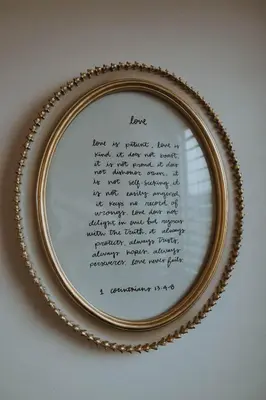 love
love is patient, love is
kind. it does not boast
it is not proud. it does
not dishonor others, it
is not self-seeking, it
is not easily angered,
it keeps no record of
wrongs. love does not
delight in evil but rejoices
with the truth. it always
protects, always trusts,
always hopes, always
perseveres. love never fails.
1 corinthians 13:4-8